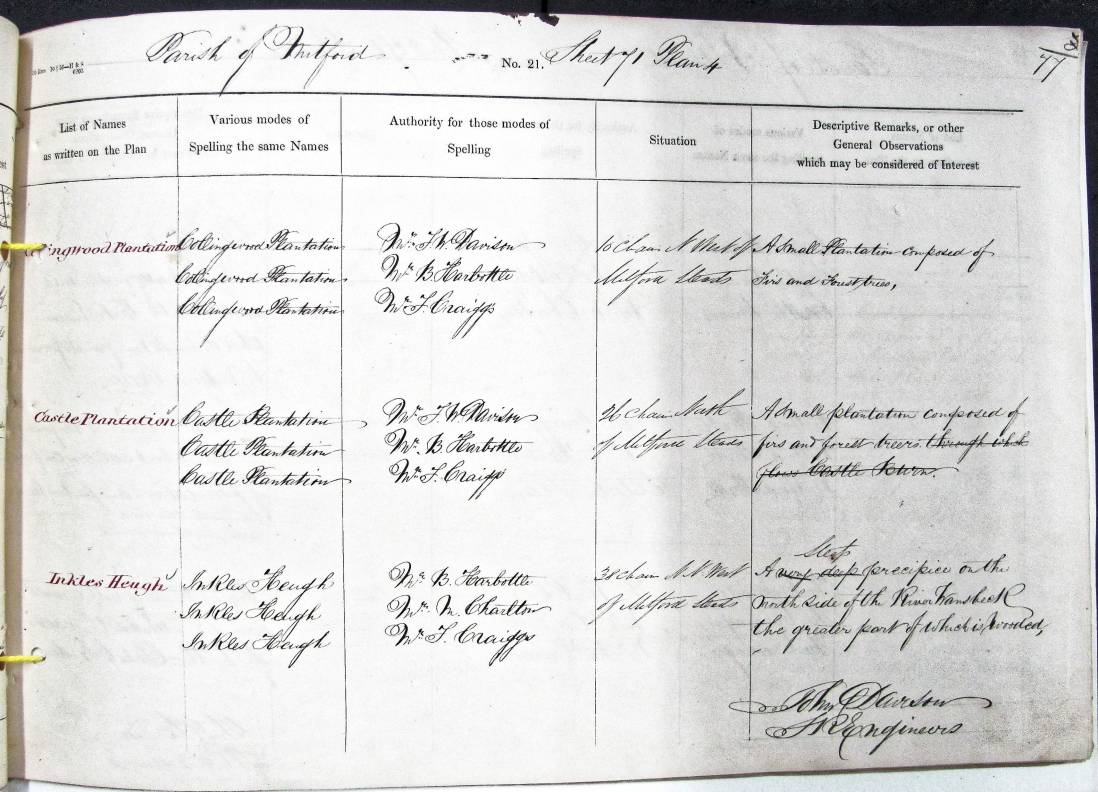 Parish of Mitford No. 21. Sheet 71 Plan 4 77
List of Names
as written on the Plan
Various modes of
Spelling the same Names
Authority for those modes of
Spelling
Situation
Descriptive Remarks, or other
General Observations
which may be considered of Interest
ingwood Plantation Collingwood Plantation Mr. J. W. Davison 10 Chains N. West of A Small Plantation composed of
Collingwood Plantation Mr. B. Harbottle Mitford Steads Firs and Forest trees,
Collingwood Plantation Mr. J. Craiggs
Castle Plantation Castle Plantation Mr. J. W. Davison 26 Chains North A small plantation composed of
Castle Plantation Mr. B. Harbottle of Mitford Steads firs and forest treers. through which
Castle Plantation Mr. J. Craiggs flows Castle Burn.
Steep
Inkles Heugh Inkles Heugh Mr. B. Harbottle 38 Chains N.N. West A very deep precipice on the
Inkles Heugh Mr. M. Charlton of Mitford Steads north side of the River Wansbeck
Inkles Heugh Mr. J. Craiggs the greater part of which is Wooded,
John C Davison
S R Engineers